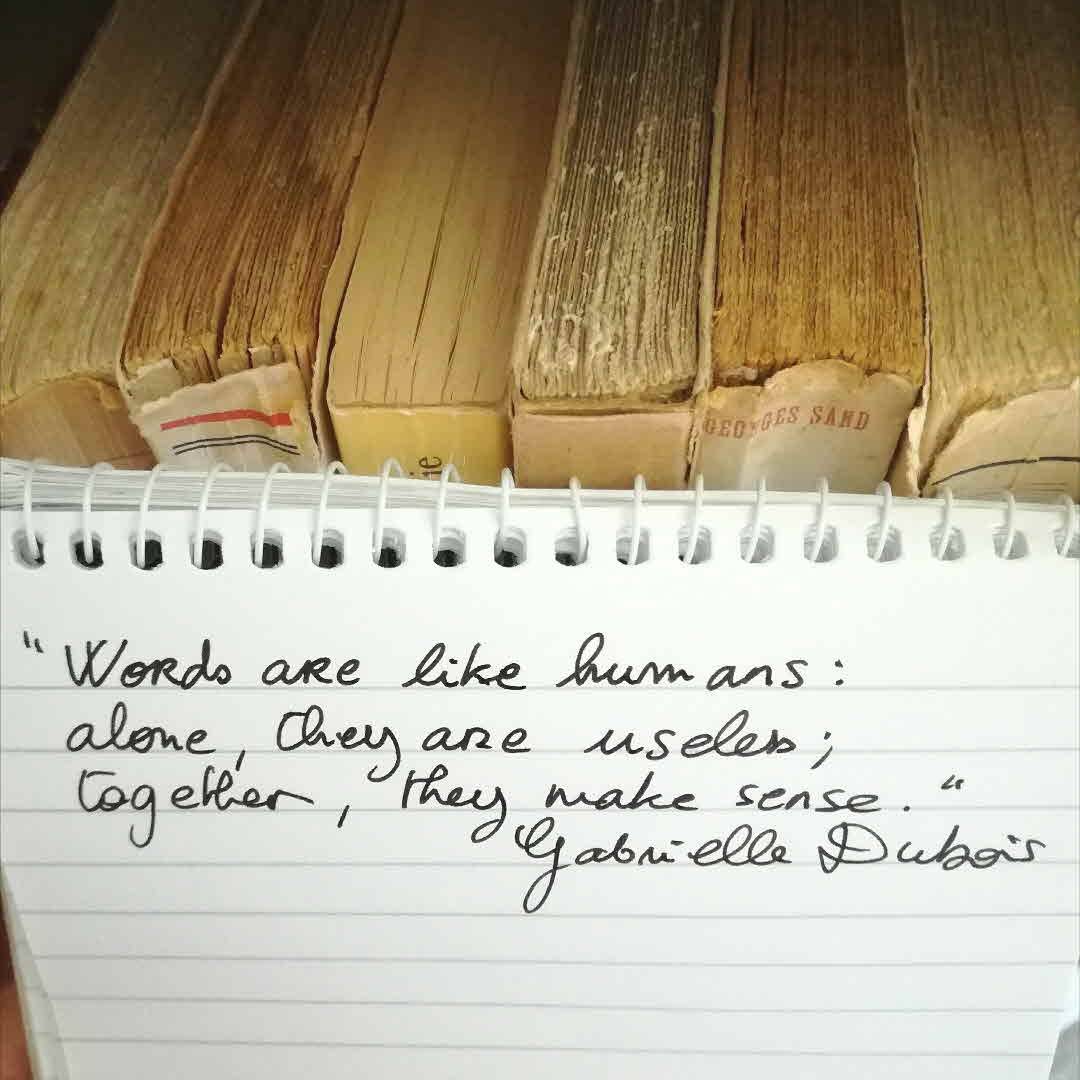 GEORGES SAND
ie
"Words are like humans:
alone, they are useless;
together, they make sense."
Gabrielle Dubois